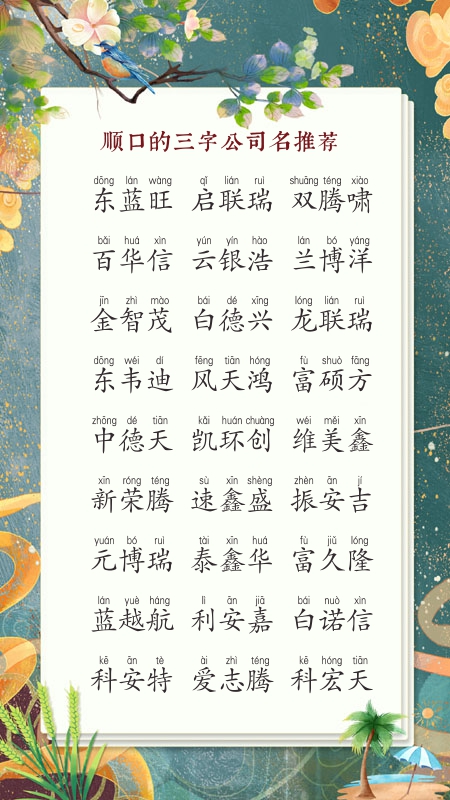 顺口的三字公司名推荐
dōng lán wàng qǐ lián ruì shuāng téng xiào
东蓝旺 启联瑞 双腾啸
bǎi huá xìn yún yín hào lán bó yáng
百华信 云银浩 兰博洋
jīn zhì mào bái dé xīng lóng lián ruì
金智茂 白德兴 龙联瑞
dōng wéi dí fēng tiān hóng fù shuò fāng
东韦迪 风天鸿 富硕方
zhōng dé tiān kǎi huán chuàng wéi měi xīn
中德天 凯环创 维美鑫
xīn róng téng sù xīn shèng zhèn ān jí
新荣腾 速鑫盛 振安吉
yuán bó ruì tài xīn huá fù jiǔ lóng
元博瑞 泰鑫华 富久隆
lán yuè háng lì ān jiā bái nuò xìn
蓝越航 利安嘉 白诺信
kē ān tè ài zhì téng kē hóng tiān
科安特 爱志腾 科宏天